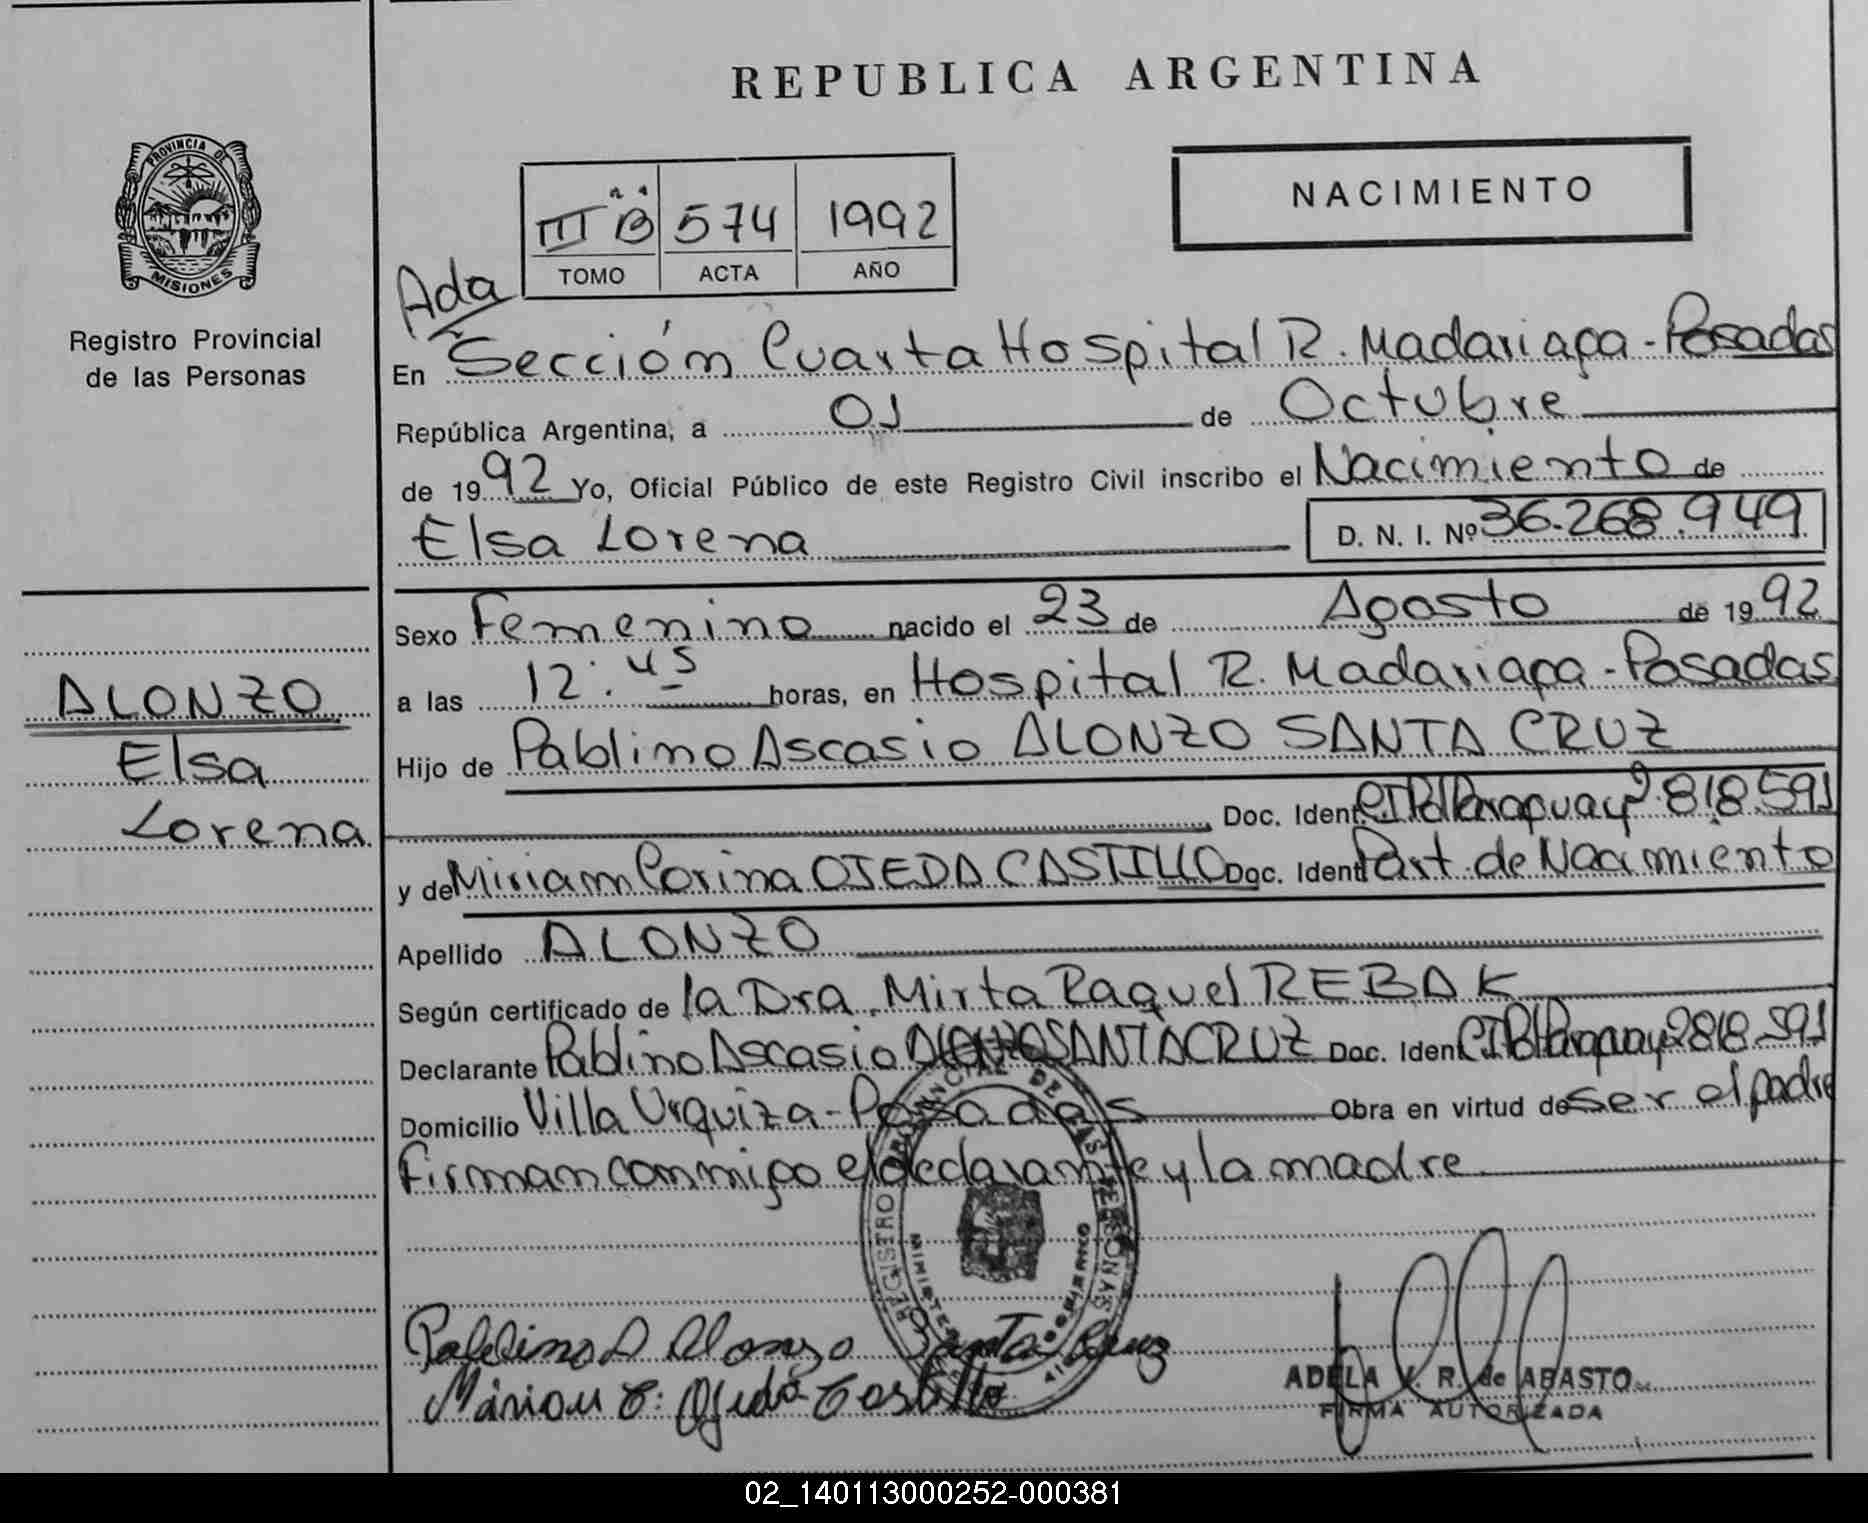 REPUBLICA ARGENTINA
NACIMIENTO
PROVINCIA DE
MISIONES
Registro Provincial
de las Personas
III B 574 1992
TOMO ACTA AÑO
Ada
En Sección Cuarta Hospital R. Madariaga - Posadas
República Argentina, a 01 de Octubre
de 1992 Yo, Oficial Público de este Registro Civil inscribo el Nacimiento de
Elsa Lorena D. N. I. Nº 36.268.949
Sexo Femenino nacido el 23 de Agosto de 1992
a las 12:45 horas, en Hospital R. Madariaga - Posadas
Hijo de Pablino Ascasio ALONZO SANTA CRUZ
Doc. Ident. CIPol Paraguay 2.818.591
y de Miriam Corina OJEDA CASTILLO Doc. Ident Part. de Nacimiento
Apellido ALONZO
Según certificado de la Dra. Mirta Raquel REBAK
Declarante Pablino Ascasio ALONZO SANTA CRUZ Doc. Iden CIPol Paraguay 2818.591
Domicilio Villa Urquiza - Posadas Obra en virtud de ser el padre
Firman conmigo el declarante y la madre
ALONZO
Elsa
Lorena
REGISTRO PROVINCIAL DE LAS PERSONAS
Pablino A Alonzo Santa Cruz
Miriam C. Ojeda Castillo
ADELA V. R. de ABASTO
FIRMA AUTORIZADA
02_140113000252-000381